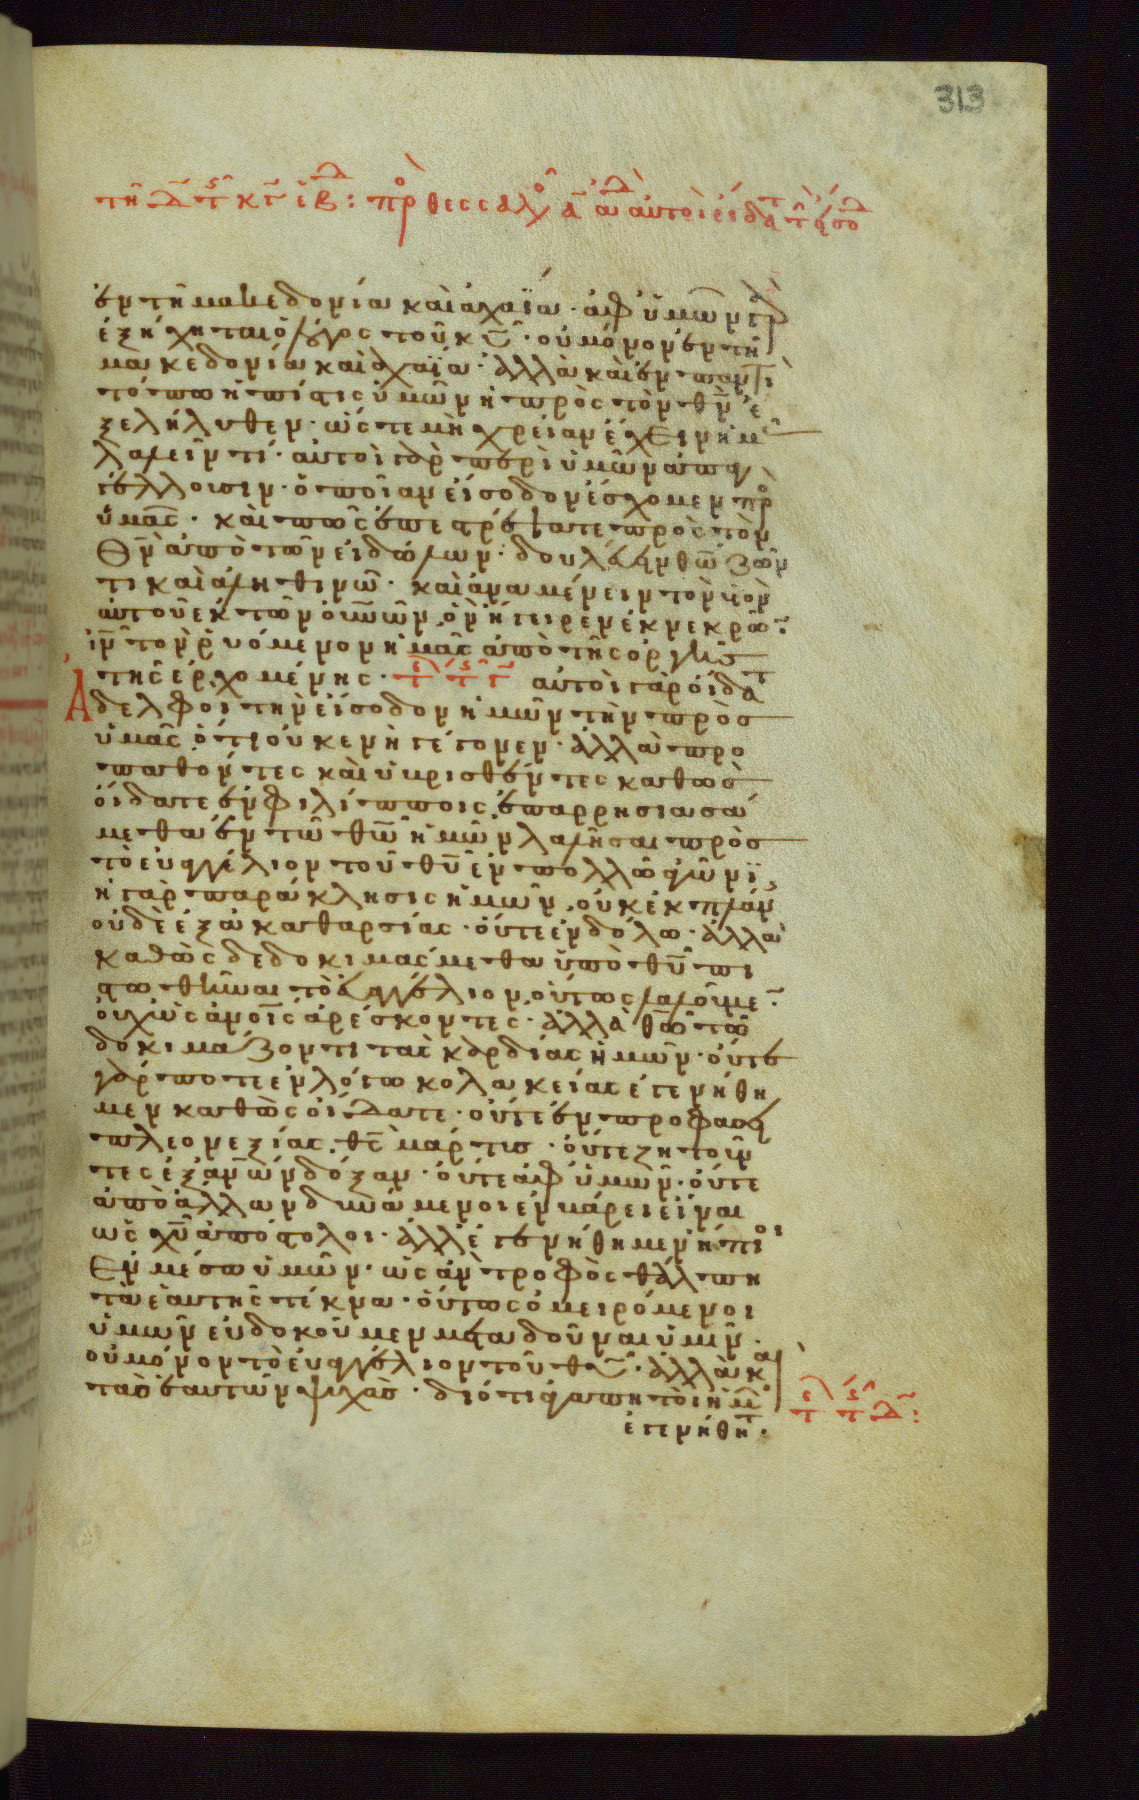 313
τῆ δ τ κτ ιβ: πρ θεσσαλ α αὐτοὶ οἴδατ
ἐν τῆ μακεδονία καὶ ἀχαΐα · ἀφ ὑμῶν γὰρ
ἐξήχηται ὁ λόγος τοῦ κυ · οὐ μόνον ἐν τῆ
μακεδονία καὶ ἀχαΐα · ἀλλὰ καὶ ἐν παντὶ
τόπω ἡ πίστις ὑμῶν ἡ πρὸς τὸν θν ἐ
ξελήλυθεν · ὥστε μὴ χρείαν ἔχειν ἡμ
λαλεῖν τί · αὐτοὶ γὰρ περὶ ὑμῶν ἀπαγ
γέλλουσιν · ὁποῖαν εἴσοδον ἔσχομεν πρ
ὑμᾶς · καὶ πῶς ἐπεστρέψατε πρὸς τὸν
Θν ἀπὸ τῶν εἰδώλων · δουλεύειν θω ζῶν
τι καὶ ἀληθινῶ · καὶ ἀναμένειν τὸν υἱὸν
αὐτοῦ ἐκ τῶν οὐνῶν, ὃν ἤγειρεν ἐκ νεκρῶ
ιν τὸν ῥυόμενον ἡμᾶς ἀπὸ τῆς ὀργῆς
τῆς ἐρχομένης · τ τ γ αὐτοὶ γὰρ οἴδατ
Ἀδελφοι τὴν εἴσοδον ἡμῶν τὴν πρὸς
ὑμᾶς ὅτι οὐ κενὴ γέγονεν · ἀλλὰ προ
παθόντες καὶ ὑβρισθέντες καθὼς
οἴδατε ἐν φιλίπποις, ἐπαρρησιασά
μεθα ἐν τῶ θω ἡμῶν λαλῆσαι πρὸς
τὸ εὐαγγέλιον τοῦ θυ ἐν πολλῶ ἀγῶνι ·
ἡ γὰρ παράκλησις ἡμῶν, οὐκ ἐκ πλάν
οὐδὲ ἐξ ἀκαθαρσίας · οὔτε ἐν δόλω · ἀλλὰ
καθὼς δεδοκιμάσμεθα ὑπὸ θυ πι
στωθῆναι τὸ εὐαγγέλιον, οὕτως λαλοῦμε
οὐχ ὡς ανοις ἀρέσκοντες · ἀλλὰ θω τῶ
δοκιμάζοντι τὰς καρδίας ἡμῶν · οὔτε
γάρ ποτε ἐν λόγω κολακείας ἐγενήθη
μεν καθὼς οἴδατε · οὔτε ἐν προφάσει
πλεονεξίας, θς μάρτυς · οὔτε ζητοῦν
τες ἐξ ανων δόξαν · οὔτε ἀφ ὑμῶν · οὔτε
ἀπὸ ἄλλων δυνάμενοι ἐν βάρει εἶναι
ὡς χυ ἀπόστολοι · ἀλλ ἐγενήθημεν ἤπιοι
Ἐν μέσω ὑμῶν · ὡς ἂν τροφὸς θάλπη
τὰ ἑαυτῆς τέκνα · οὕτως ὁμειρόμενοι
ὑμῶν εὐδοκοῦμεν μεταδοῦναι ὑμῖν ·
οὐ μόνον τὸ εὐαγγέλιον τοῦ θυ · ἀλλὰ καὶ
τὰς ἑαυτῶν ψυχὰς · διότι ἀγαπητοὶ ἡμ
ἐγενήθητ ·
τ τ δ :